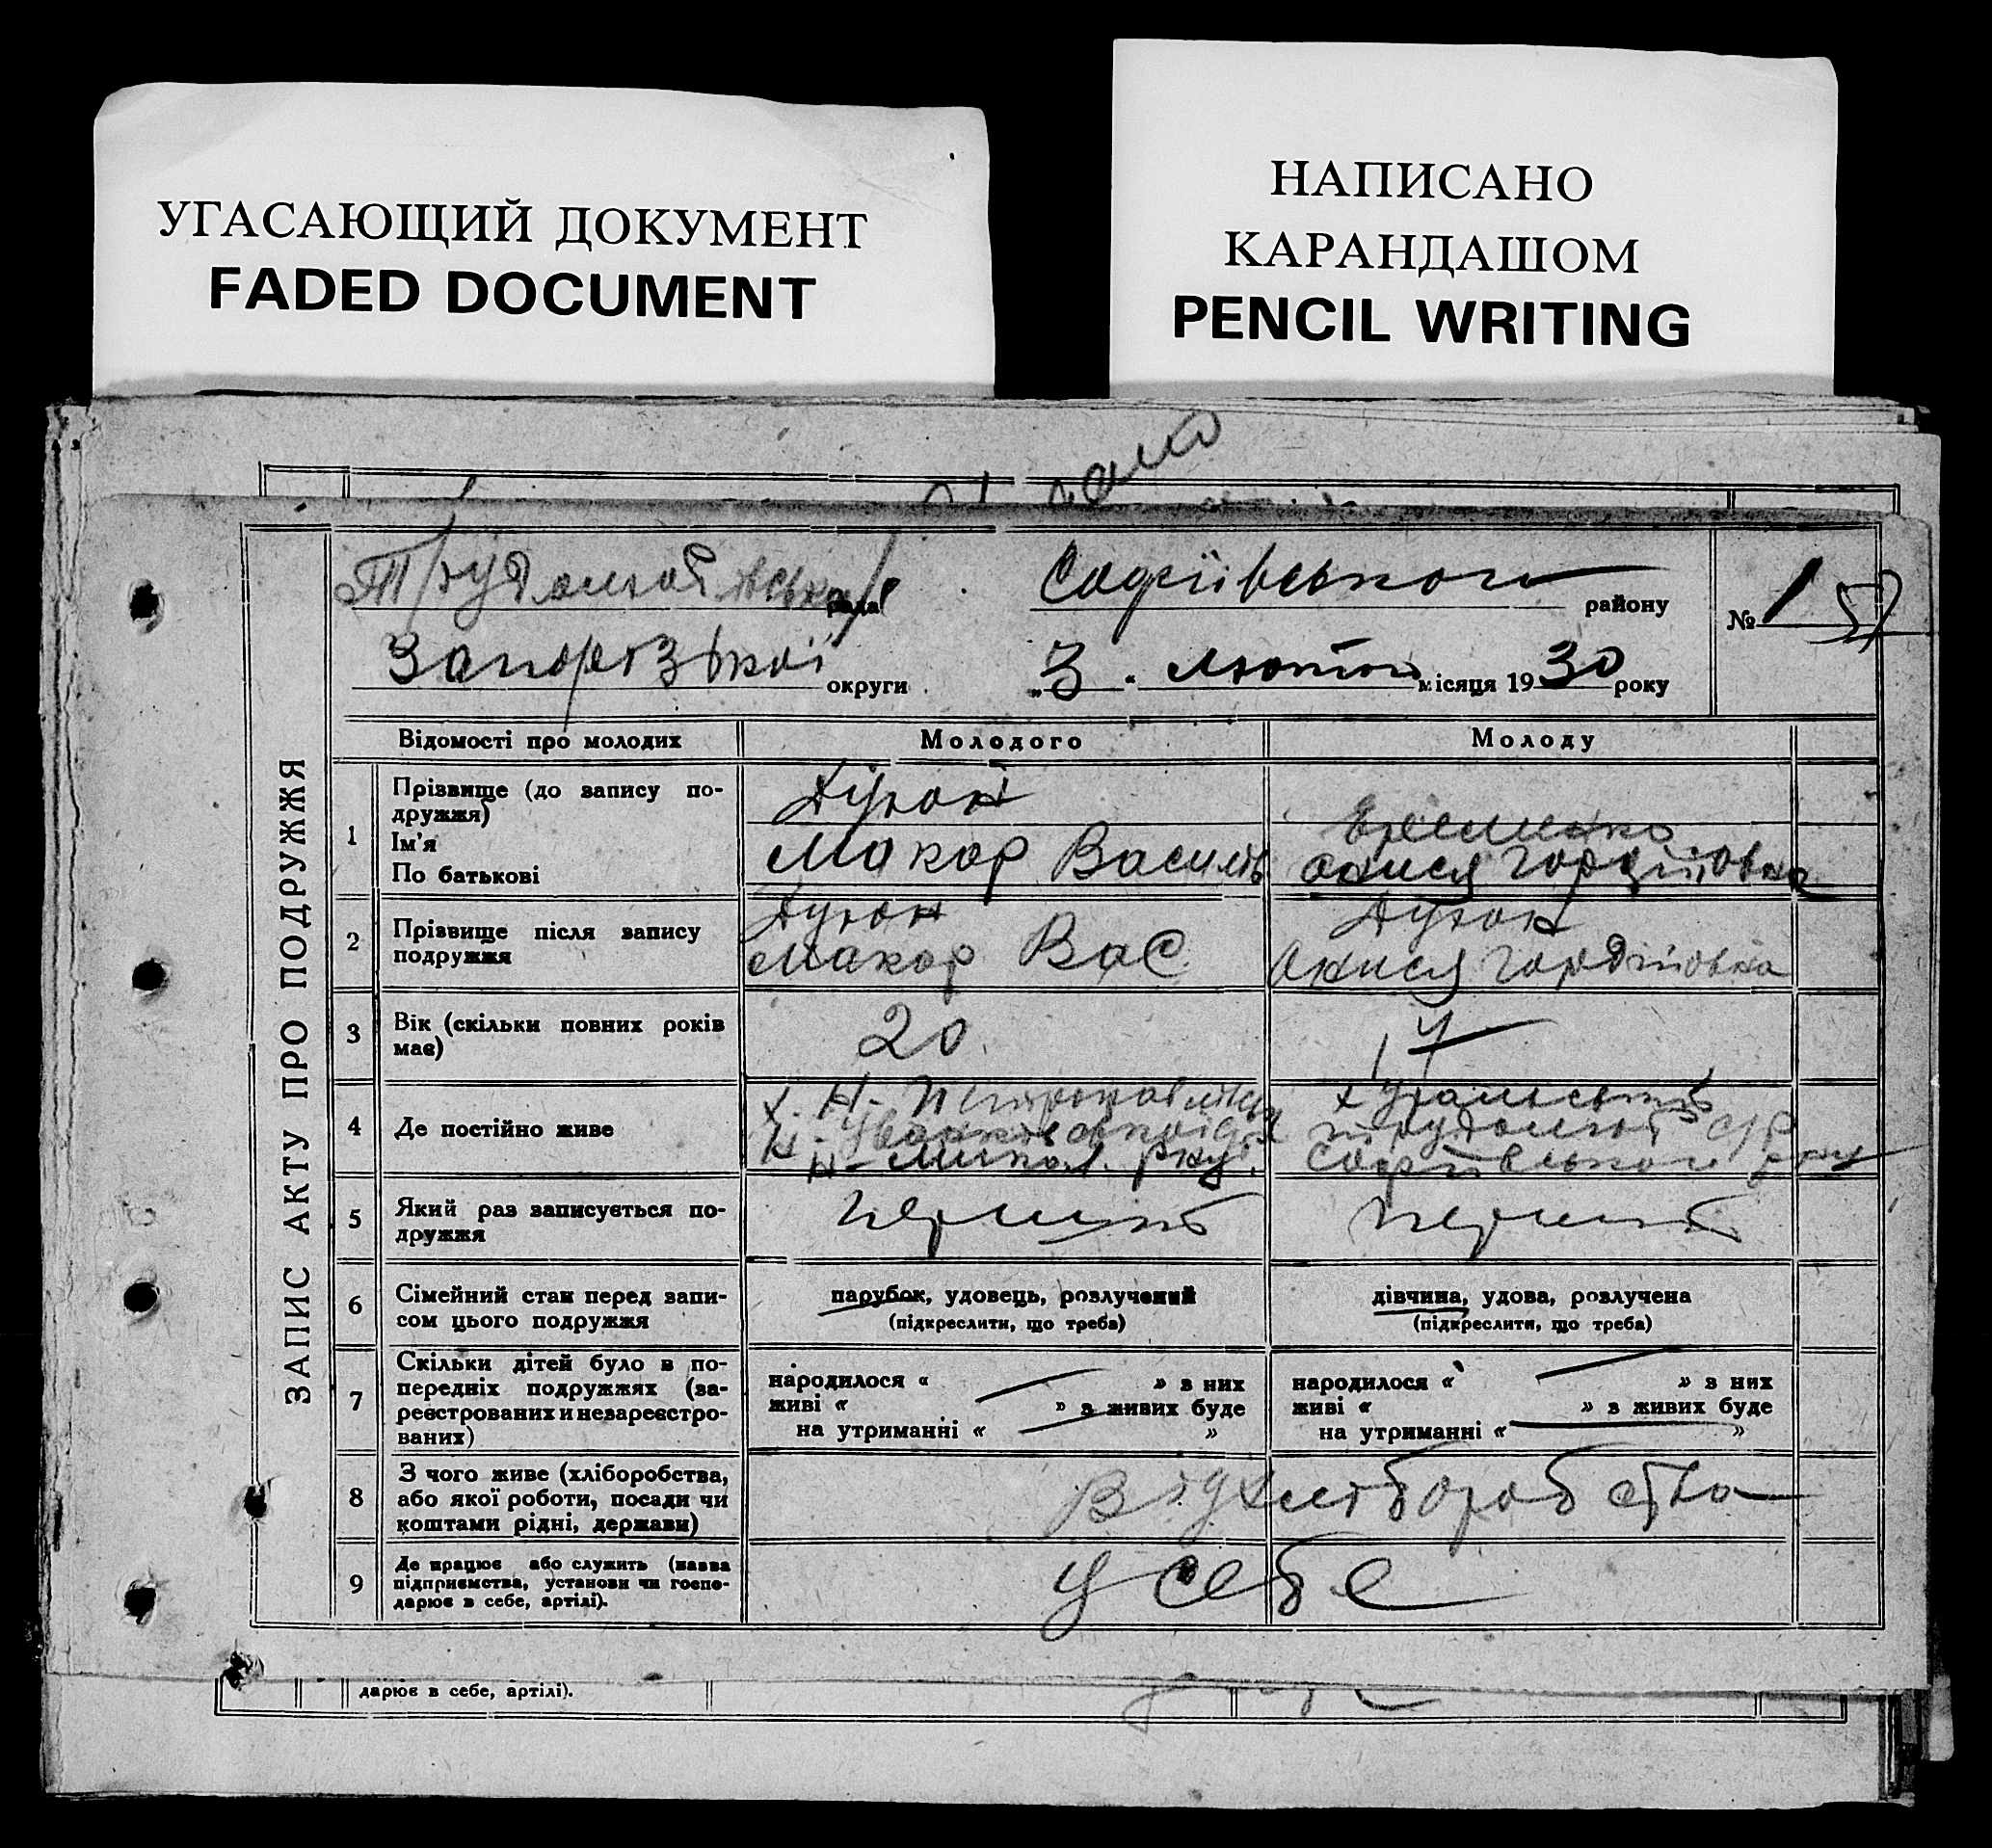 УГАСАЮЩИЙ ДОКУМЕНТ
FADED DOCUMENT
НАПИСАНО
КАРАНДАШОМ
PENCIL WRITING
ЗАПИС АКТУ ПРО ПОДРУЖЖЯ
рада Софіївського району № 1
Запорізької округи „3“ лютого місяця 1930 року
Відомості про молодих Молодого Молоду
1 Прізвище (до запису по-
дружжя)
Ім'я
По батькові
Макар Василів
2 Прізвище після запису
подружжя
Макар Вас
3 Вік (скільки повних років
має)
20 17
4 Де постійно живе
Софіївського
5 Який раз записується по-
дружжя
перший перший
6 Сімейний стан перед запи-
сом цього подружжя
парубок, удовець, розлучений
(підкреслити, що треба)
дівчина, удова, розлучена
(підкреслити, що треба)
7 Скільки дітей було в по-
передніх подружжях (за-
реєстрованих и незареєстро-
ваних)
народилося « » з них
живі « » з живих буде
на утриманні « »
народилося « » з них
живі « » з живих буде
на утриманні « »
8 З чого живе (хліборобства,
або якої роботи, посади чи
коштами рідні, держави)
Від хліборобства
9 Де працює або служить (назва
підприємства, установи чи госпо-
дарює в себе, артілі).
У себе
дарює в себе, артілі).